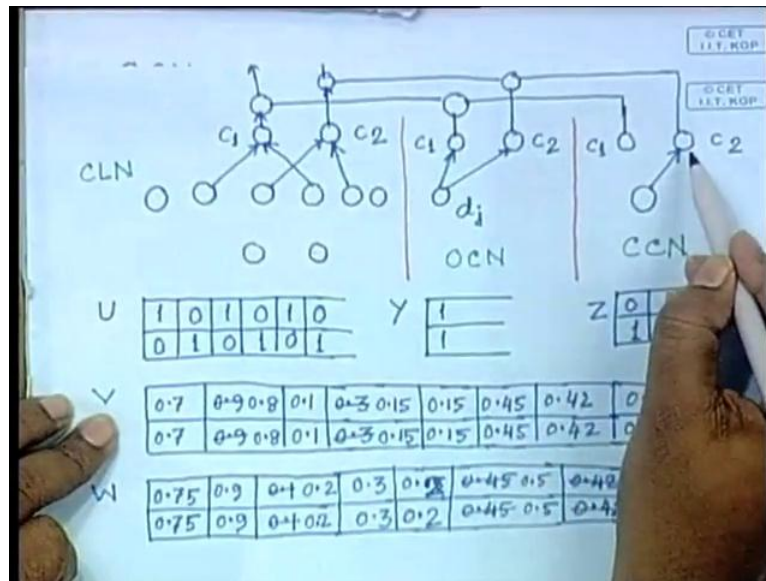 © CET
I.I.T. KGP
© CET
I.I.T. KGP
C1 C2 C1 C2 C1 C2
CLN
dj
OCN CCN
U 1 0 1 0 1 0 Y 1 Z 0
0 1 0 1 0 1 1 1
V 0.7 0.9 0.8 0.1 0.3 0.15 0.15 0.45 0.42
0.7 0.9 0.8 0.1 0.3 0.15 0.15 0.45 0.42
W 0.75 0.9 0.1 0.2 0.3 0.45 0.5 0.42
0.75 0.9 0.1 0.2 0.3 0.2 0.45 0.5